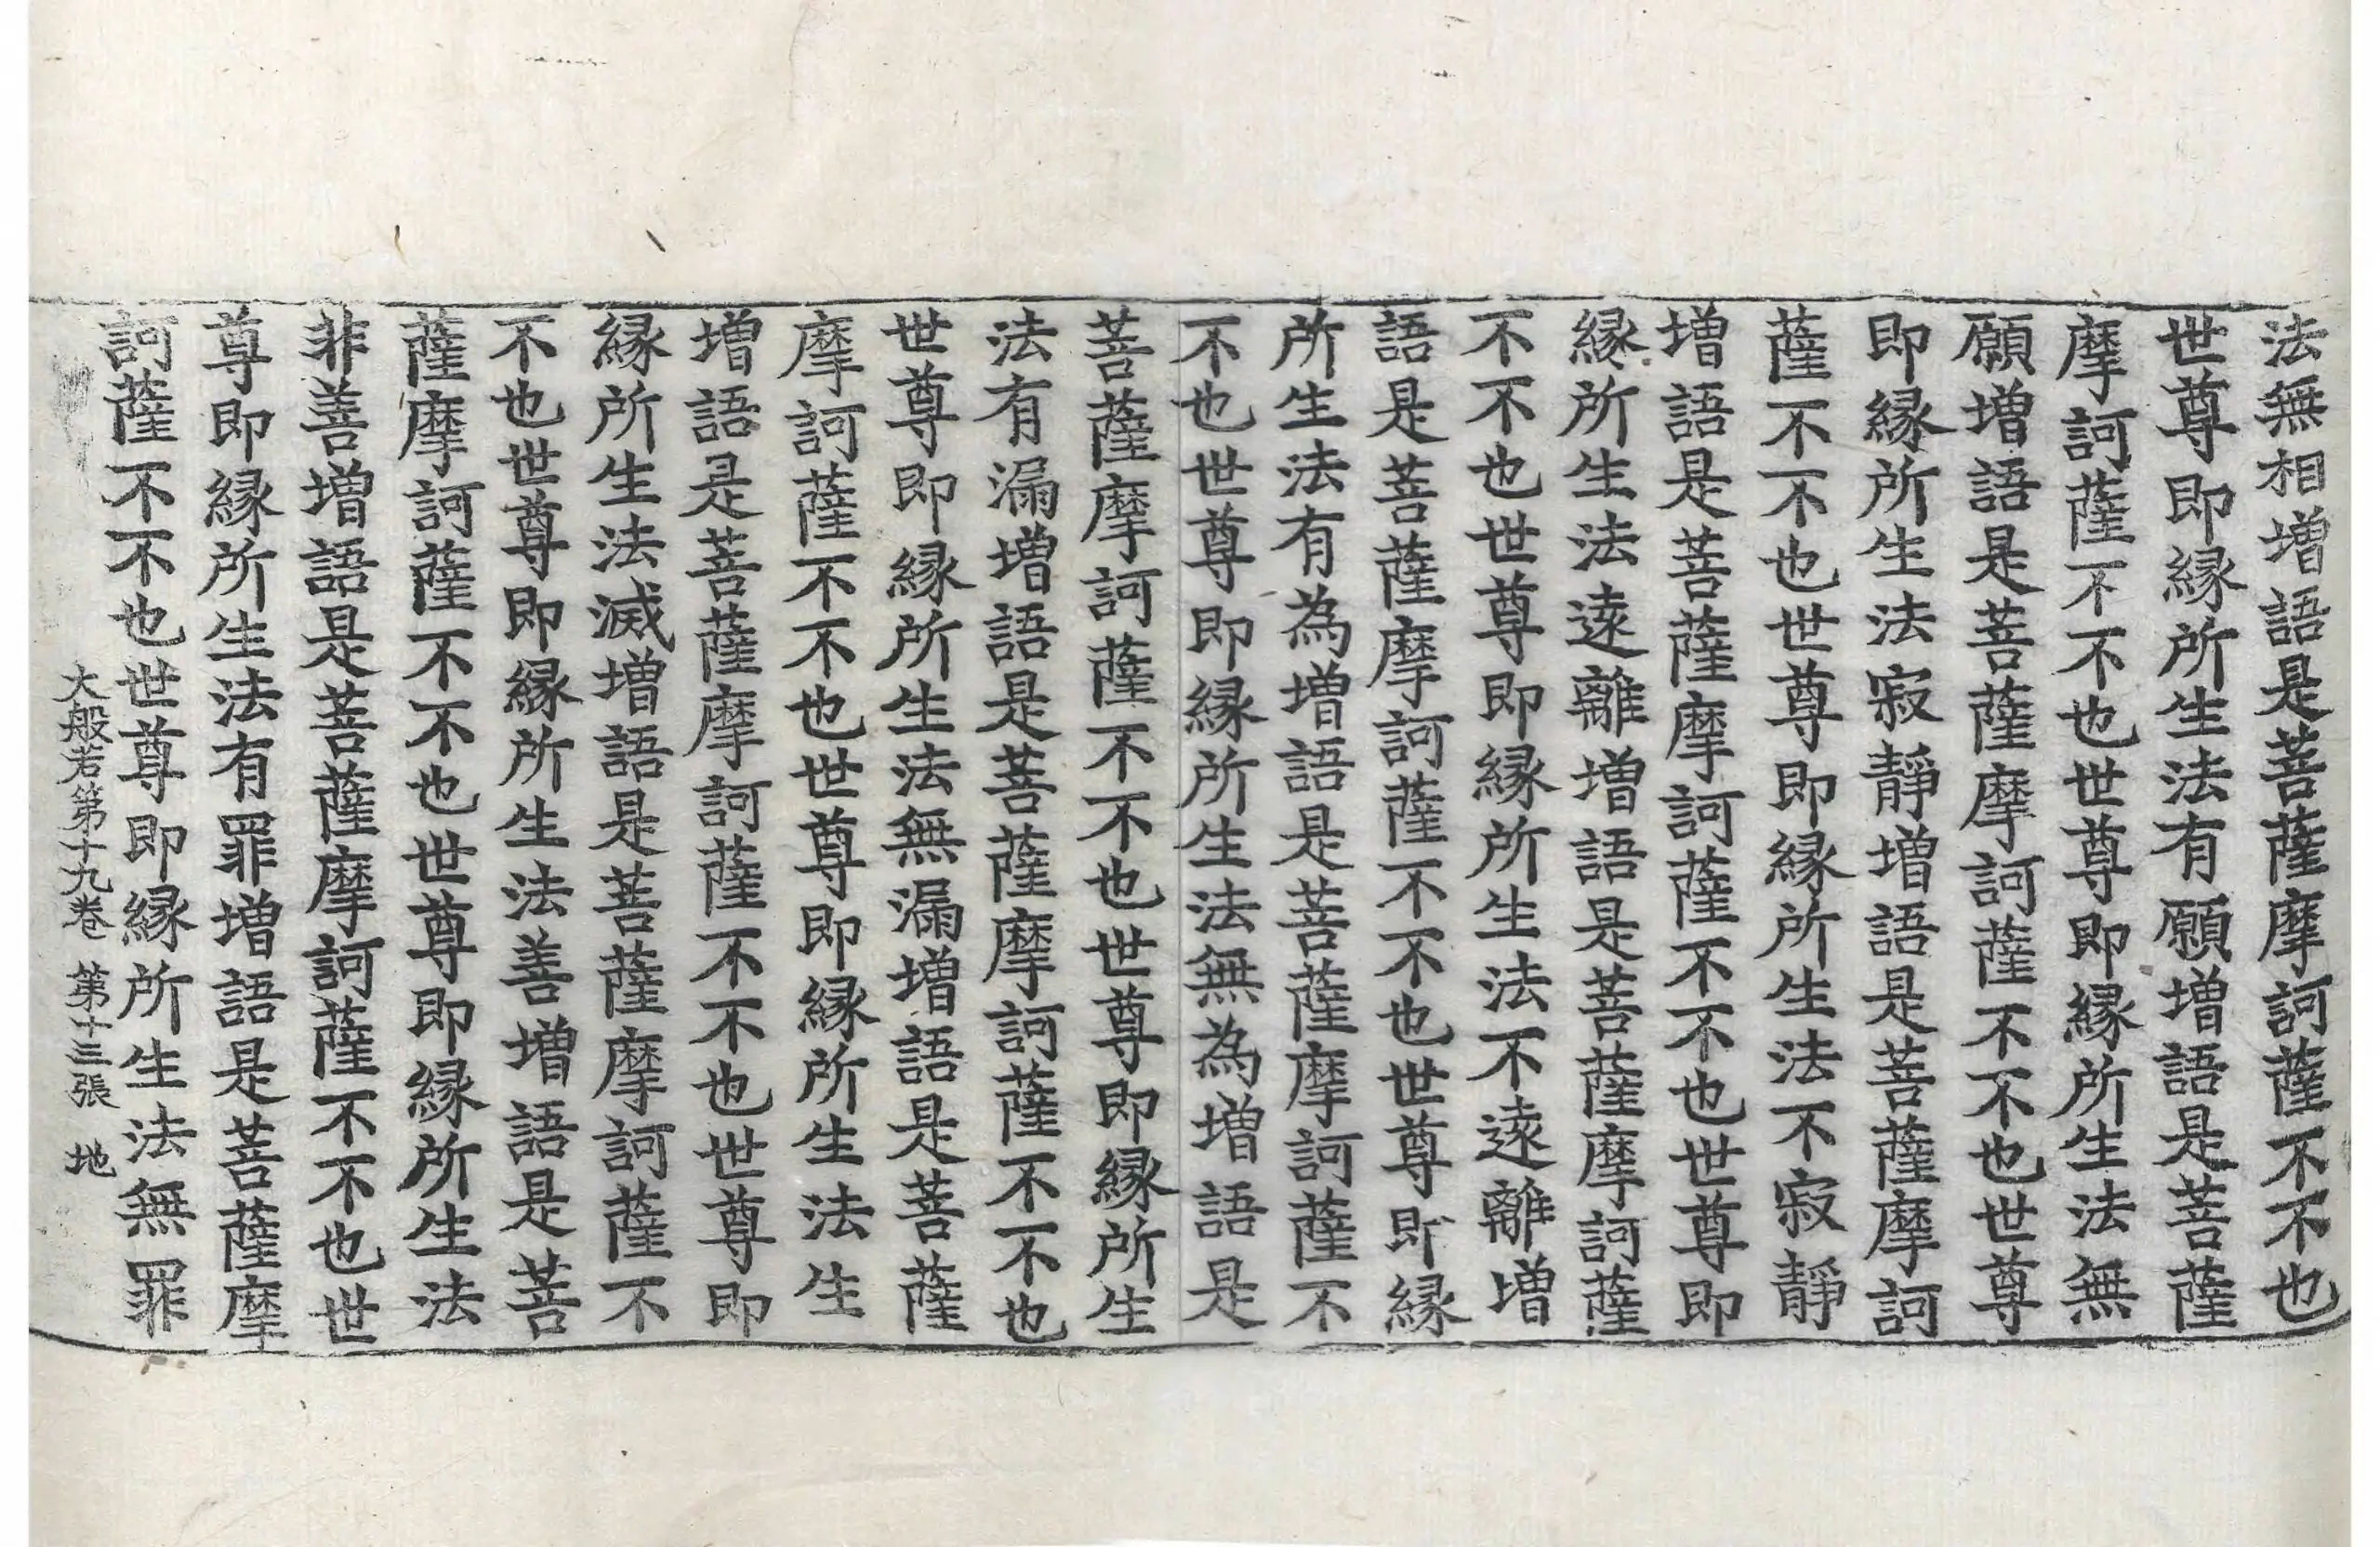 法無相增語是菩薩摩訶薩不不也
世尊即縁所生法有願增語是菩薩
摩訶薩不不也世尊即縁所生法無
願增語是菩薩摩訶薩不不也世尊
即縁所生法寂靜增語是菩薩摩訶
薩不不也世尊即縁所生法不寂靜
增語是菩薩摩訶薩不不也世尊即
縁所生法遠離增語是菩薩摩訶薩
不不也世尊即縁所生法不遠離增
語是菩薩摩訶薩不不也世尊即縁
所生法有為增語是菩薩摩訶薩不
不也世尊即縁所生法無為增語是
菩薩摩訶薩不不也世尊即縁所生
法有漏增語是菩薩摩訶薩不不也
世尊即縁所生法無漏增語是菩薩
摩訶薩不不也世尊即縁所生法生
增語是菩薩摩訶薩不不也世尊即
縁所生法滅增語是菩薩摩訶薩不
不也世尊即縁所生法善增語是菩
薩摩訶薩不不也世尊即縁所生法
非善增語是菩薩摩訶薩不不也世
尊即縁所生法有罪增語是菩薩摩
訶薩不不也世尊即縁所生法無罪
大般若第十九卷 第十三張 地